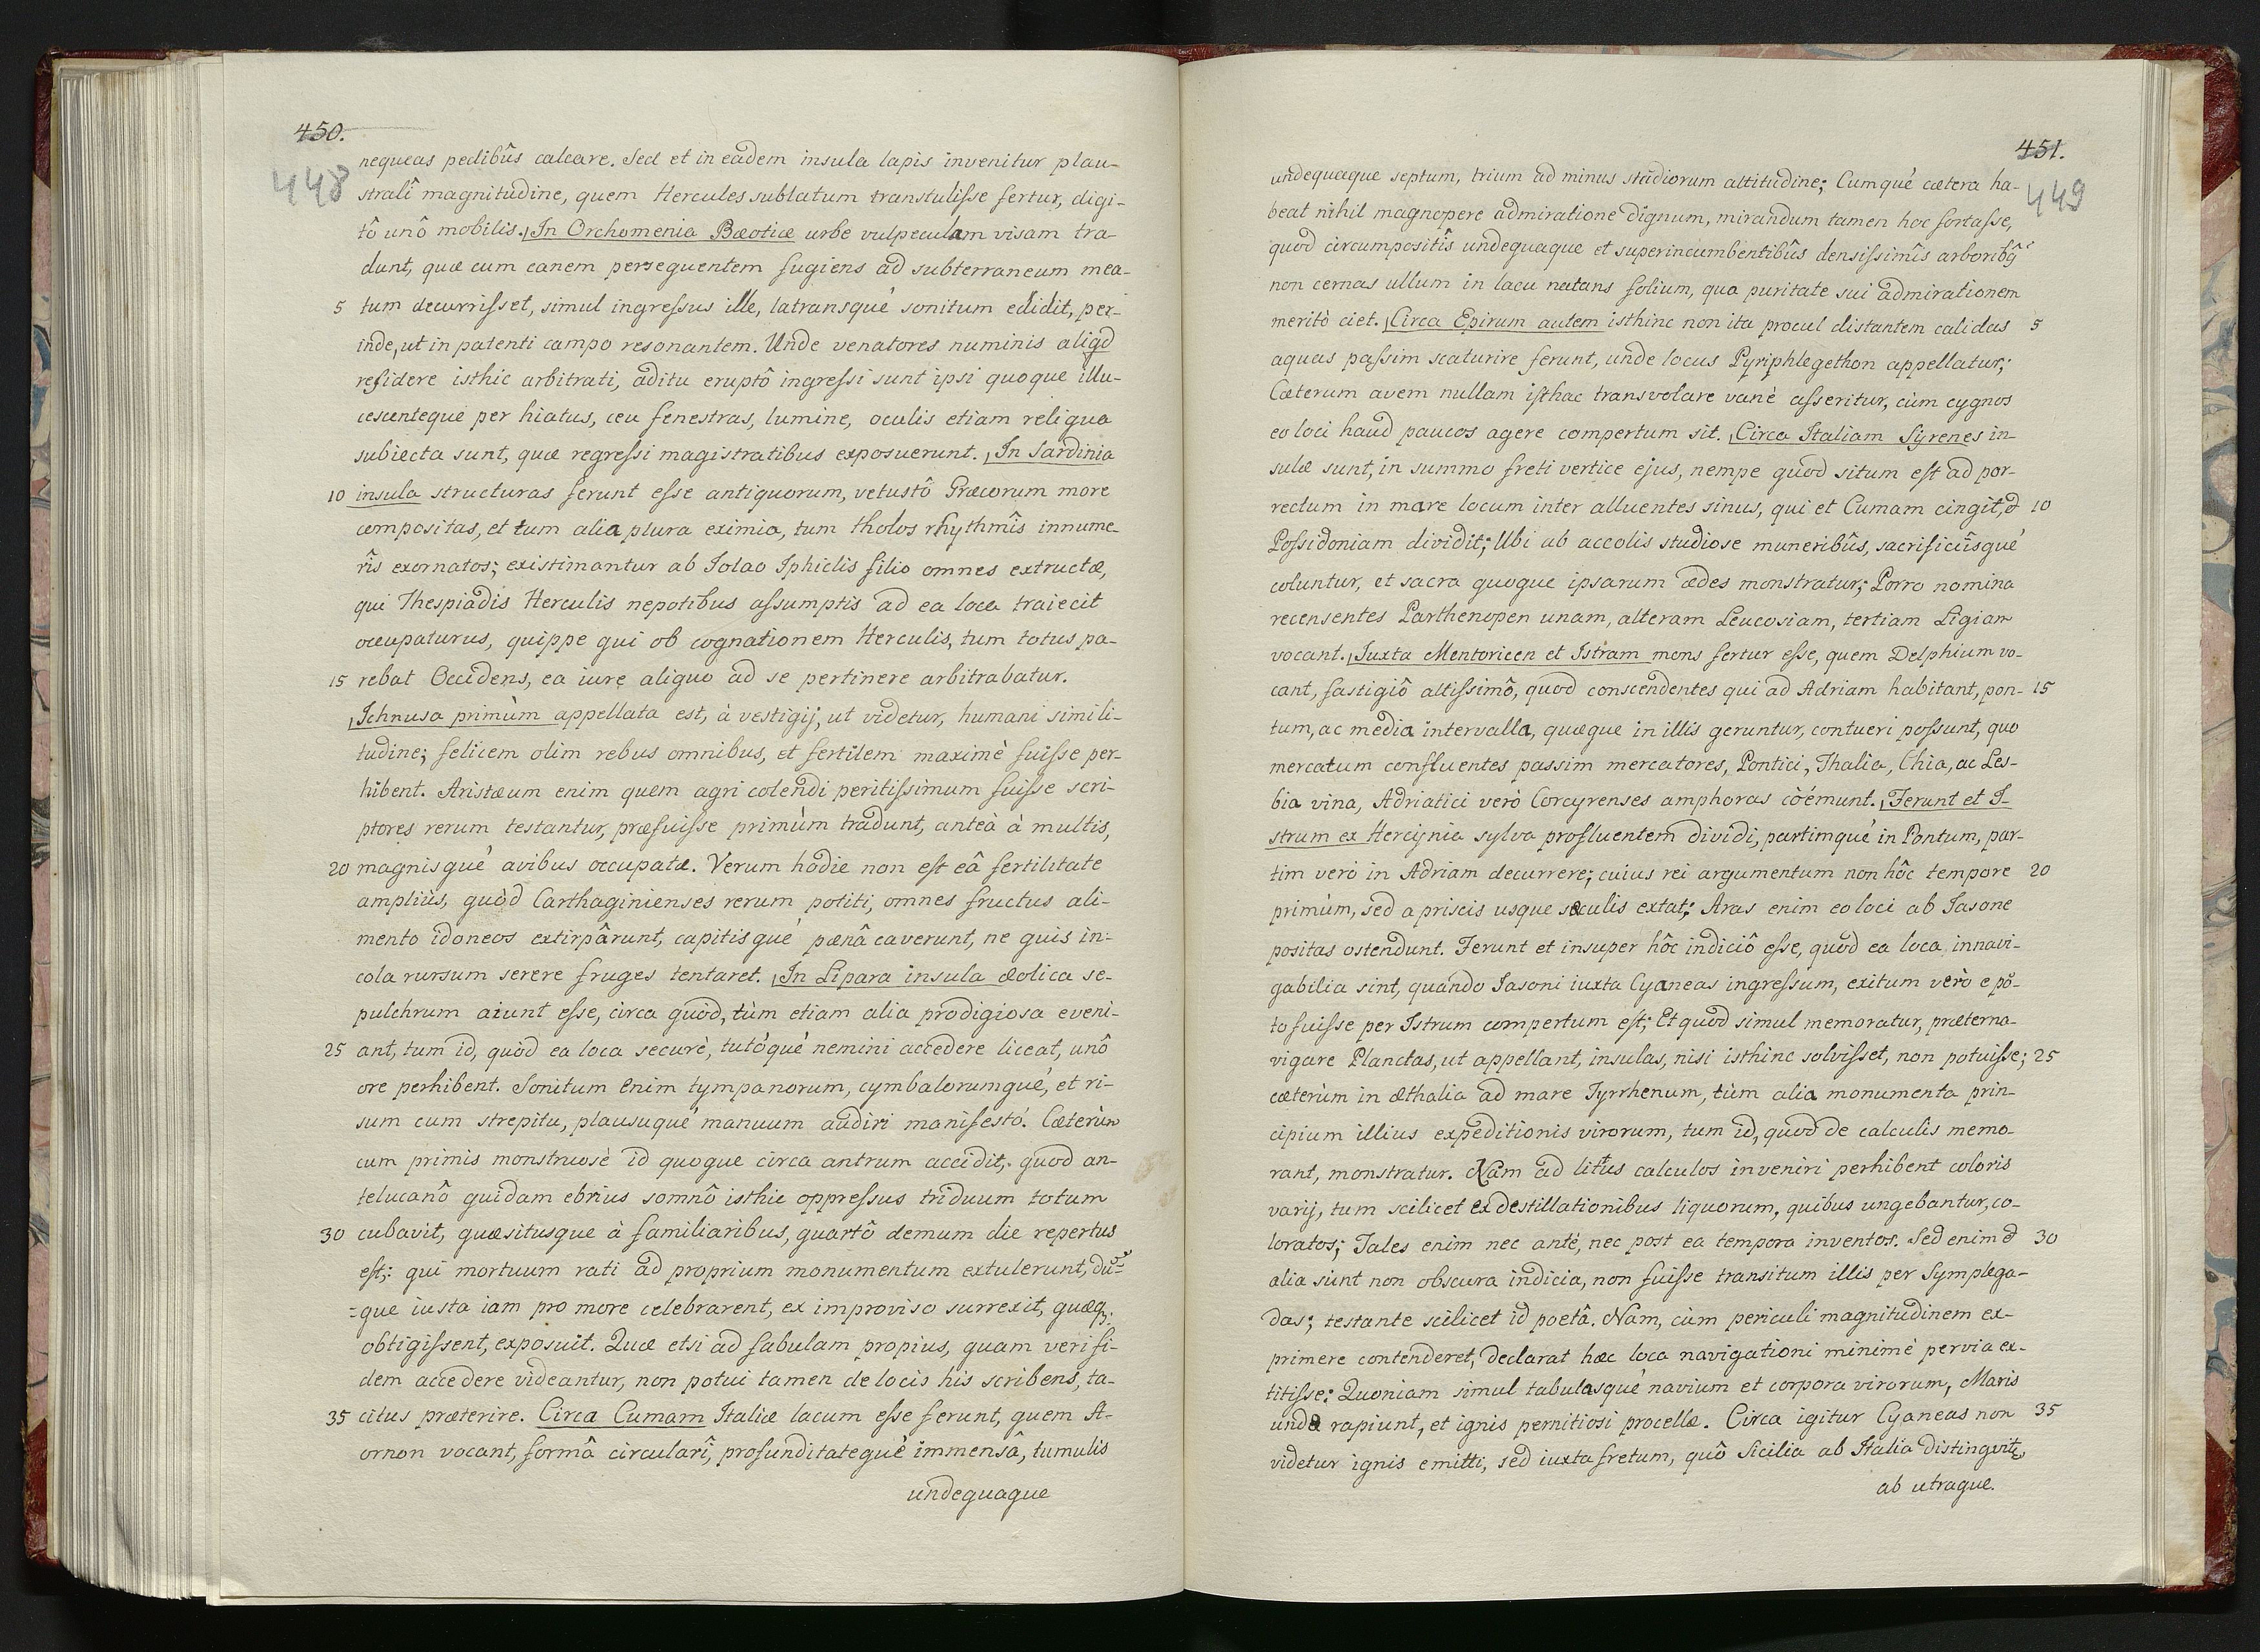 450.
448
nequeas pedibûs calcare. Sed et in eadem insula lapis invenitur plau-
stralî magnitudine, quem Hercules sublatum transtulisse fertur, digi-
tô unô mobilis. In Orchomenia Bæotiæ urbe vulpeculam visam tra-
dunt, quæ cum canem persequentem fugiens ad subterraneum mea-
5 tum decurrisset, simul ingressus ille, latransqué sonitum edidit, per-
inde, ut in patenti campo resonantem. Unde venatores numinis aliqd
residere isthic arbitrati, aditu eruptô ingressi sunt ipsi quoque illu-
cescenteque per hiatus, ceu fenestras, lumine, oculis etiam reliqua
subiecta sunt, quæ regressi magistratibus exposuerunt. In Sardinia
10 insula structuras ferunt esse antiquorum, vetustô Græcorum more
compositas, et tum alia plura eximia, tum tholos rhythmîs innume-
rîs exornatos; existimantur ab Iolao Iphiclis filio omnes extructæ,
qui Thespiadis Herculis nepotibus assumptis ad ea loca traiecit
occupaturus, quippe qui ob cognationem Herculis, tum totus pa-
15 rebat Occidens, ea iure aliquo ad se pertinere arbitrabatur.
Ichnusa primùm appellata est, à vestigij, ut videtur, humani simili-
tudine; felicem olim rebus omnibus, et fertilem maximè fuisse per-
hibent. Aristæum enim quem agri colendi peritissimum fuisse scri-
ptores rerum testantur, præfuisse primùm tradunt, anteà à multis,
20 magnisqué avibus occupatæ. Verum hodie non est eâ fertilitate
ampliùs, quòd Carthaginienses rerum potiti, omnes fructus ali-
mento idoneos extirpârunt, capitisqué pœnâ caverunt, ne quis in-
cola rursum serere fruges tentaret. In Lipara insula æolica se-
pulchrum aiunt esse, circa quòd, tùm etiam alia prodigiosa eveni-
25 ant, tum id, quòd ea loca securè, tutóqué nemini accedere liceat, unô
ore perhibent. Sonitum enim tympanorum, cymbalorumqué, et ri-
sum cum strepitu, plausuqué manuum audiri manifestó. Cæterùm
cum primis monstruosè id quoque circa antrum accidit; quod an-
telucanô quidam ebrius somnô isthic oppressus triduum totum
30 cubavit, quæsitusque à familiaribus, quartô demum die repertus
est; qui mortuum rati ad proprium monumentum extulerunt, dū=
=que iusta iam pro more celebrarent, ex improviso surrexit, quæq;
obtigissent, exposuit. Quæ etsi ad fabulam propius, quam veri fi-
dem accedere videantur, non potui tamen de locis his scribens, ta-
35 citus præterire. Circa Cumam Italiæ lacum esse ferunt, quem A-
ornon vocant, formâ circularî, profunditatequè immensâ, tumulis
undequaque
451.
449
undequaque septum, trium ad minus stadiorum altitudine; Cumqué cætera ha-
beat nihil magnopere admiratione dignum, mirandum tamen hoc fortasse,
quod circumpositîs undequaque et superincumbentibûs densissimîs arboribq
non cernas ullum in lacu natans folium, qua puritate sui admirationem
meritò ciet. Circa Epirum autem isthinc non ita procul distantem calidas 5
aquas passim scaturire ferunt, unde locus Pyriphlegethon appellatur;
Cæterum avem nullam isthac transvolare vanè asseritur, cùm cygnos
eo loci haud paucos agere compertum sit. Circa Italiam Syrenes in-
sulæ sunt, in summo freti vertice ejus, nempe quòd situm est ad por-
rectum in mare locum inter alluentes sinus, qui et Cumam cingit, & 10
Possidoniam dividit; Ubi ab accolis studiose muneribûs, sacrificiîsqué
coluntur, et sacra quoque ipsarum ædes monstratur; Porro nomina
recensentes Parthenopen unam, alteram Leucosiam, tertiam Ligiam
vocant. Iuxta Mentoricen et Istram mons fertur esse, quem Delphium vo-
cant, fastigiô altissimô, quòd conscendentes qui ad Adriam habitant, pon- 15
tum, ac media intervalla, quæque in illis geruntur, contueri possunt, quo
mercatum confluentes passim mercatores, Pontici, Thalia, Chia, ac Les-
bia vina, Adriatici verò Corcyrenses amphoras cöémunt. Ferunt et I-
strum ex Hercijnia sylva profluentem dividi, partimqué in Pontum, par-
tim verò in Adriam decurrere; cuius rei argumentum non hôc tempore 20
primùm, sed a priscis usque sæculis extat; Aras enim eo loci ab Iasone
positas ostendunt. Ferunt et insuper hôc indiciô esse, quòd ea loca innavi-
gabilia sint, quando Iasoni iuxta Cyaneas ingressum, exitum verò e pō-
to fuisse per Istrum compertum est; Et quòd simul memoratur, præterna-
vigare Planctas, ut appellant, insulas, nisi isthinc solvisset, non potuisse; 25
cæterùm in Æthalia ad mare Tyrrhenum, tùm alia monumenta prin-
cipium illius expeditionis virorum, tum id, quòd de calculis memo-
rant, monstratur. Nam ad littus calculos inveniri perhibent coloris
varij, tum scilicet ex destillationibus liquorum, quibus ungebantur, co-
loratos; Tales enim nec anté, nec post ea tempora inventos. Sed enim & 30
alia sunt non obscura indicia, non fuisse transitum illis per Symplega-
das; testante scilicet id poetâ. Nam, cùm periculi magnitudinem ex-
primere contenderet, declarat hæc loca navigationi minimè pervia ex-
titisse: Quoniam simul tabulasqué navium et corpora virorum, Maris
undæ rapiunt, et ignis pernitiosi procellæ. Circa igitur Cyaneas non 35
videtur ignis emitti, sed iuxta fretum, quô Sicilia ab Italia distinguitr,
ab utraque.